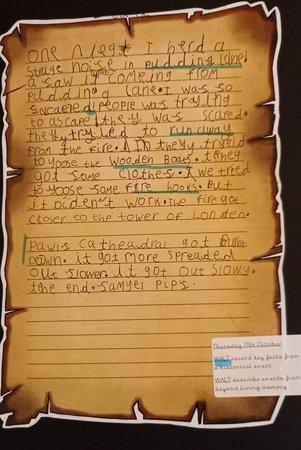 one night I herd a
strage noise in pudding lane.
a saw it comeing from
pudding lane. I was so
scared people was trying
to ascape. they was scared.
they tryed to run away
from the fire. in they tryed
to yoose the wooden Boats. they
got some clothes. we treed
to yoose some fire hooks. but
it diden't work. the fire got
closer to the tower of londen.
pawls catheadral got burnt
down. it got more spreaded
out slower. it got out slowy.
the end. samyel pips.
Thursday 17th October
WALT record key facts from
a historical event
WALT describe events from
beyond living memory